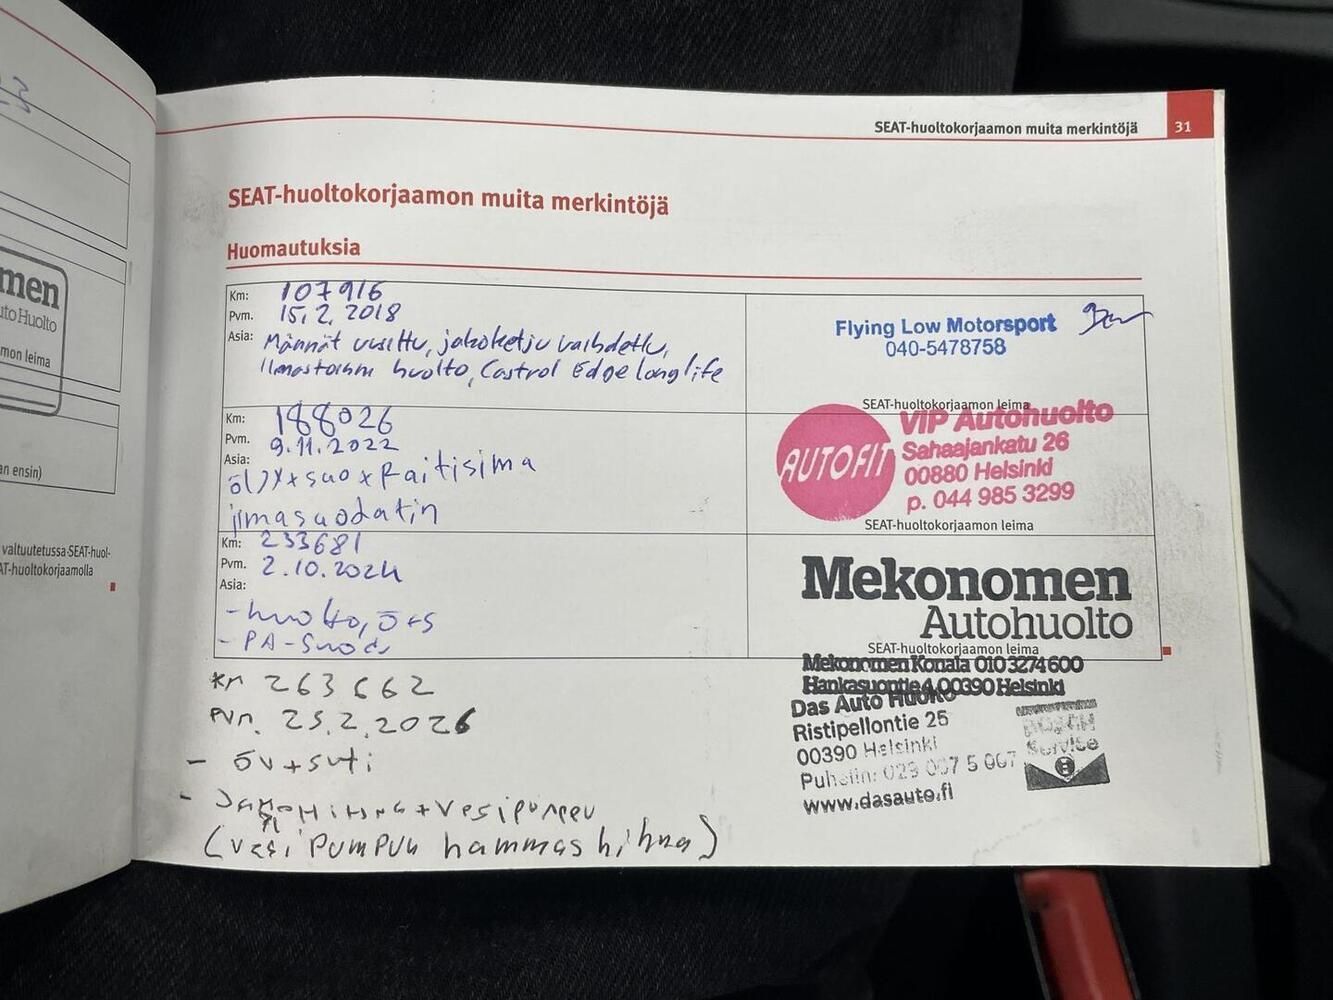 SEAT-huoltokorjaamon muita merkintöjä 31
SEAT-huoltokorjaamon muita merkintöjä
Huomautuksia
Km: 107916
Pvm. 15.2.2018
Asia: Männät uusittu, jakoketju vaihdettu,
Ilmastoinni huolto, Castrol Edge longlife
Flying Low Motorsport
040-5478758
SEAT-huoltokorjaamon leima
Km: 188026
Pvm. 9.11.2022
Asia:
öljy+suo+Raitisima
ilmasuodatin
AUTOFIT
VIP Autohuolto
Sahaajankatu 26
00880 Helsinki
p. 044 985 3299
SEAT-huoltokorjaamon leima
Km: 233681
Pvm. 2.10.2024
Asia:
- huolto, ö+s
- PA-Suod
Mekonomen
Autohuolto
SEAT-huoltokorjaamon leima
Mekonomen Konala 010 3274600
Hankasuontie 4 00390 Helsinki
Km 263662
Pvm. 25.2.2026
- öv+suti
- Jakohihna+vesipumppu
(vesipumpun hammashihna)
Das Auto Huolto
Ristipellontie 25
00390 Helsinki
Puhelin: 029 007 5 007
www.dasauto.fi
Service
men
uto Huolto
mon leima
an ensin)
valtuutetussa SEAT-huol-
AT-huoltokorjaamolla